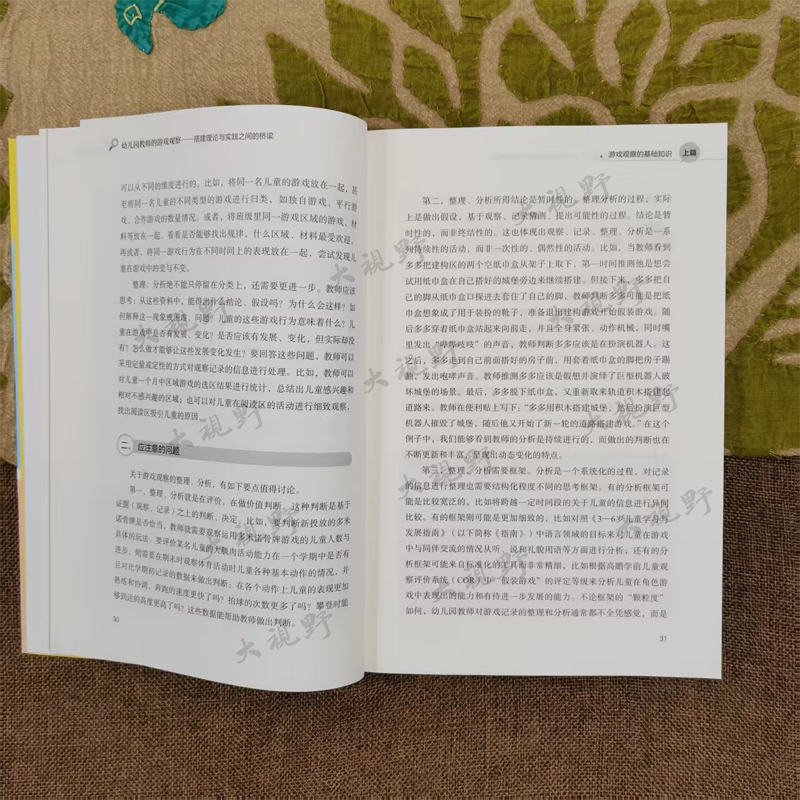 幼儿园教师的游戏观察——搭建理论与实践之间的桥梁
可以从不同的维度进行的。比如，将同一名儿童的游戏放在一起，甚
至将同一名儿童的不同类型的游戏进行归类，如独自游戏、平行游
戏、合作游戏的数量情况。或者，将班级里同一游戏区域的游戏、材
料等放在一起，看看是否能够找出规律，什么区域、材料最受欢迎。
再或者，将同一游戏行为在不同时间上的表现放在一起，尝试发现儿
童在游戏中的变与不变。
整理、分析绝不能只停留在分类上，还需要更进一步。教师应该
思考：从这些资料中，能得出什么结论、假设吗？为什么会这样？如
何解释这一现象或困难、问题？儿童的这些游戏行为意味着什么？儿
童在游戏中是否有发展、变化？是否应该有发展、变化，但实际却没
有？怎么做才能够让这些发展变化发生？要回答这些问题，教师可以
采用定量或定性的方式对观察记录的信息进行处理。比如，教师可以
对儿童一个月中区域游戏的选区结果进行统计，总结出儿童感兴趣和
相对不感兴趣的区域；也可以对儿童在阅读区的活动进行细致观察，
找出阅读区吸引儿童的原因。
二、应注意的问题
关于游戏观察的整理、分析，有如下要点值得讨论。
第一，整理、分析就是在评价，在做价值判断。这种判断是基于
证据（观察、记录）之上的判断、决定。比如，要判断新投放的多米
诺骨牌是否恰当，教师就需要观察运用多米诺骨牌游戏的儿童人数与
具体的玩法。要评价某名儿童的大肌肉活动能力在一个学期中是否有
进步，则需要在期末时观察体育活动时儿童各种基本动作的情况，并
且对比学期初记录的数据来做出判断：在各个动作上儿童的表现更加
熟练和协调、奔跑的速度更快了吗？拍球的次数更多了吗？攀登时能
够到达的高度更高了吗？这些数据能帮助教师做出判断。
30
游戏观察的基础知识 上篇
第二，整理、分析所得结论是暂时性的。整理分析的过程，实际
上是做出假设，基于观察、记录猜测、提出可能性的过程。结论是暂
时性的，而非终结性的。这也体现出观察、记录、整理、分析是一系
列持续性的活动，而非一次性的、偶然性的活动。比如，当教师看到
多多把建构区的两个空纸巾盒从架子上取下，第一时间推测他是想尝
试用纸巾盒在自己搭好的城堡旁边来继续搭建。但接下来，多多把自
己的脚从纸巾盒口探进去套住了自己的脚，教师判断多多可能是把纸
巾盒想象成了用于装扮的靴子，准备退出建构游戏开始假装游戏。随
后多多穿着纸巾盒站起来向前走，并且全身紧张、动作机械，同时嘴
里发出“哔哔吱吱”的声音，教师判断多多应该是在扮演机器人。这
之后，多多走到自己前面搭好的房子前，用套着纸巾盒的脚把房子踢
翻，发出咆哮声音。教师推测多多应该是假想并演绎了巨型机器人破
坏城堡的场景。最后，多多脱下纸巾盒，又重新取来轨道积木搭建起
道路来。教师在便利贴上写下：“多多用积木搭建城堡，然后扮演巨型
机器人摧毁了城堡，随后他又开始了新一轮的道路搭建游戏。”在这个
例子中，我们能够看到教师的分析是持续进行的，而做出的判断也在
不断更新和丰富，呈现出动态变化的特点。
第三，整理、分析需要框架。分析是一个系统化的过程，对记录
的信息进行整理也需要结构化程度不同的思考框架。有的分析框架可
能是比较宽泛的，比如将跨越一定时间段的关于儿童的信息进行异同
比较。有的框架则可能是更加细致的，比如对照《3-6岁儿童学习与
发展指南》（以下简称《指南》）中语言领域的目标来对儿童在游戏中
与同伴交流的情况从听、说和礼貌用语等方面进行分析；还有的分析
框架可能来自标准化的工具而非常精细，比如根据高瞻学前儿童观
察评价系统（COR）中“假装游戏”的评定等级来分析儿童在角色游
戏中表现出的能力和有待进一步发展的能力。不论框架的“颗粒度”
如何，幼儿园教师对游戏记录的整理和分析通常都不全凭感觉，而是
31
大视野
大视野
大视野
大视野
大视野
大视野
大视野
大视野
大视野
大视野
大视野
大视野